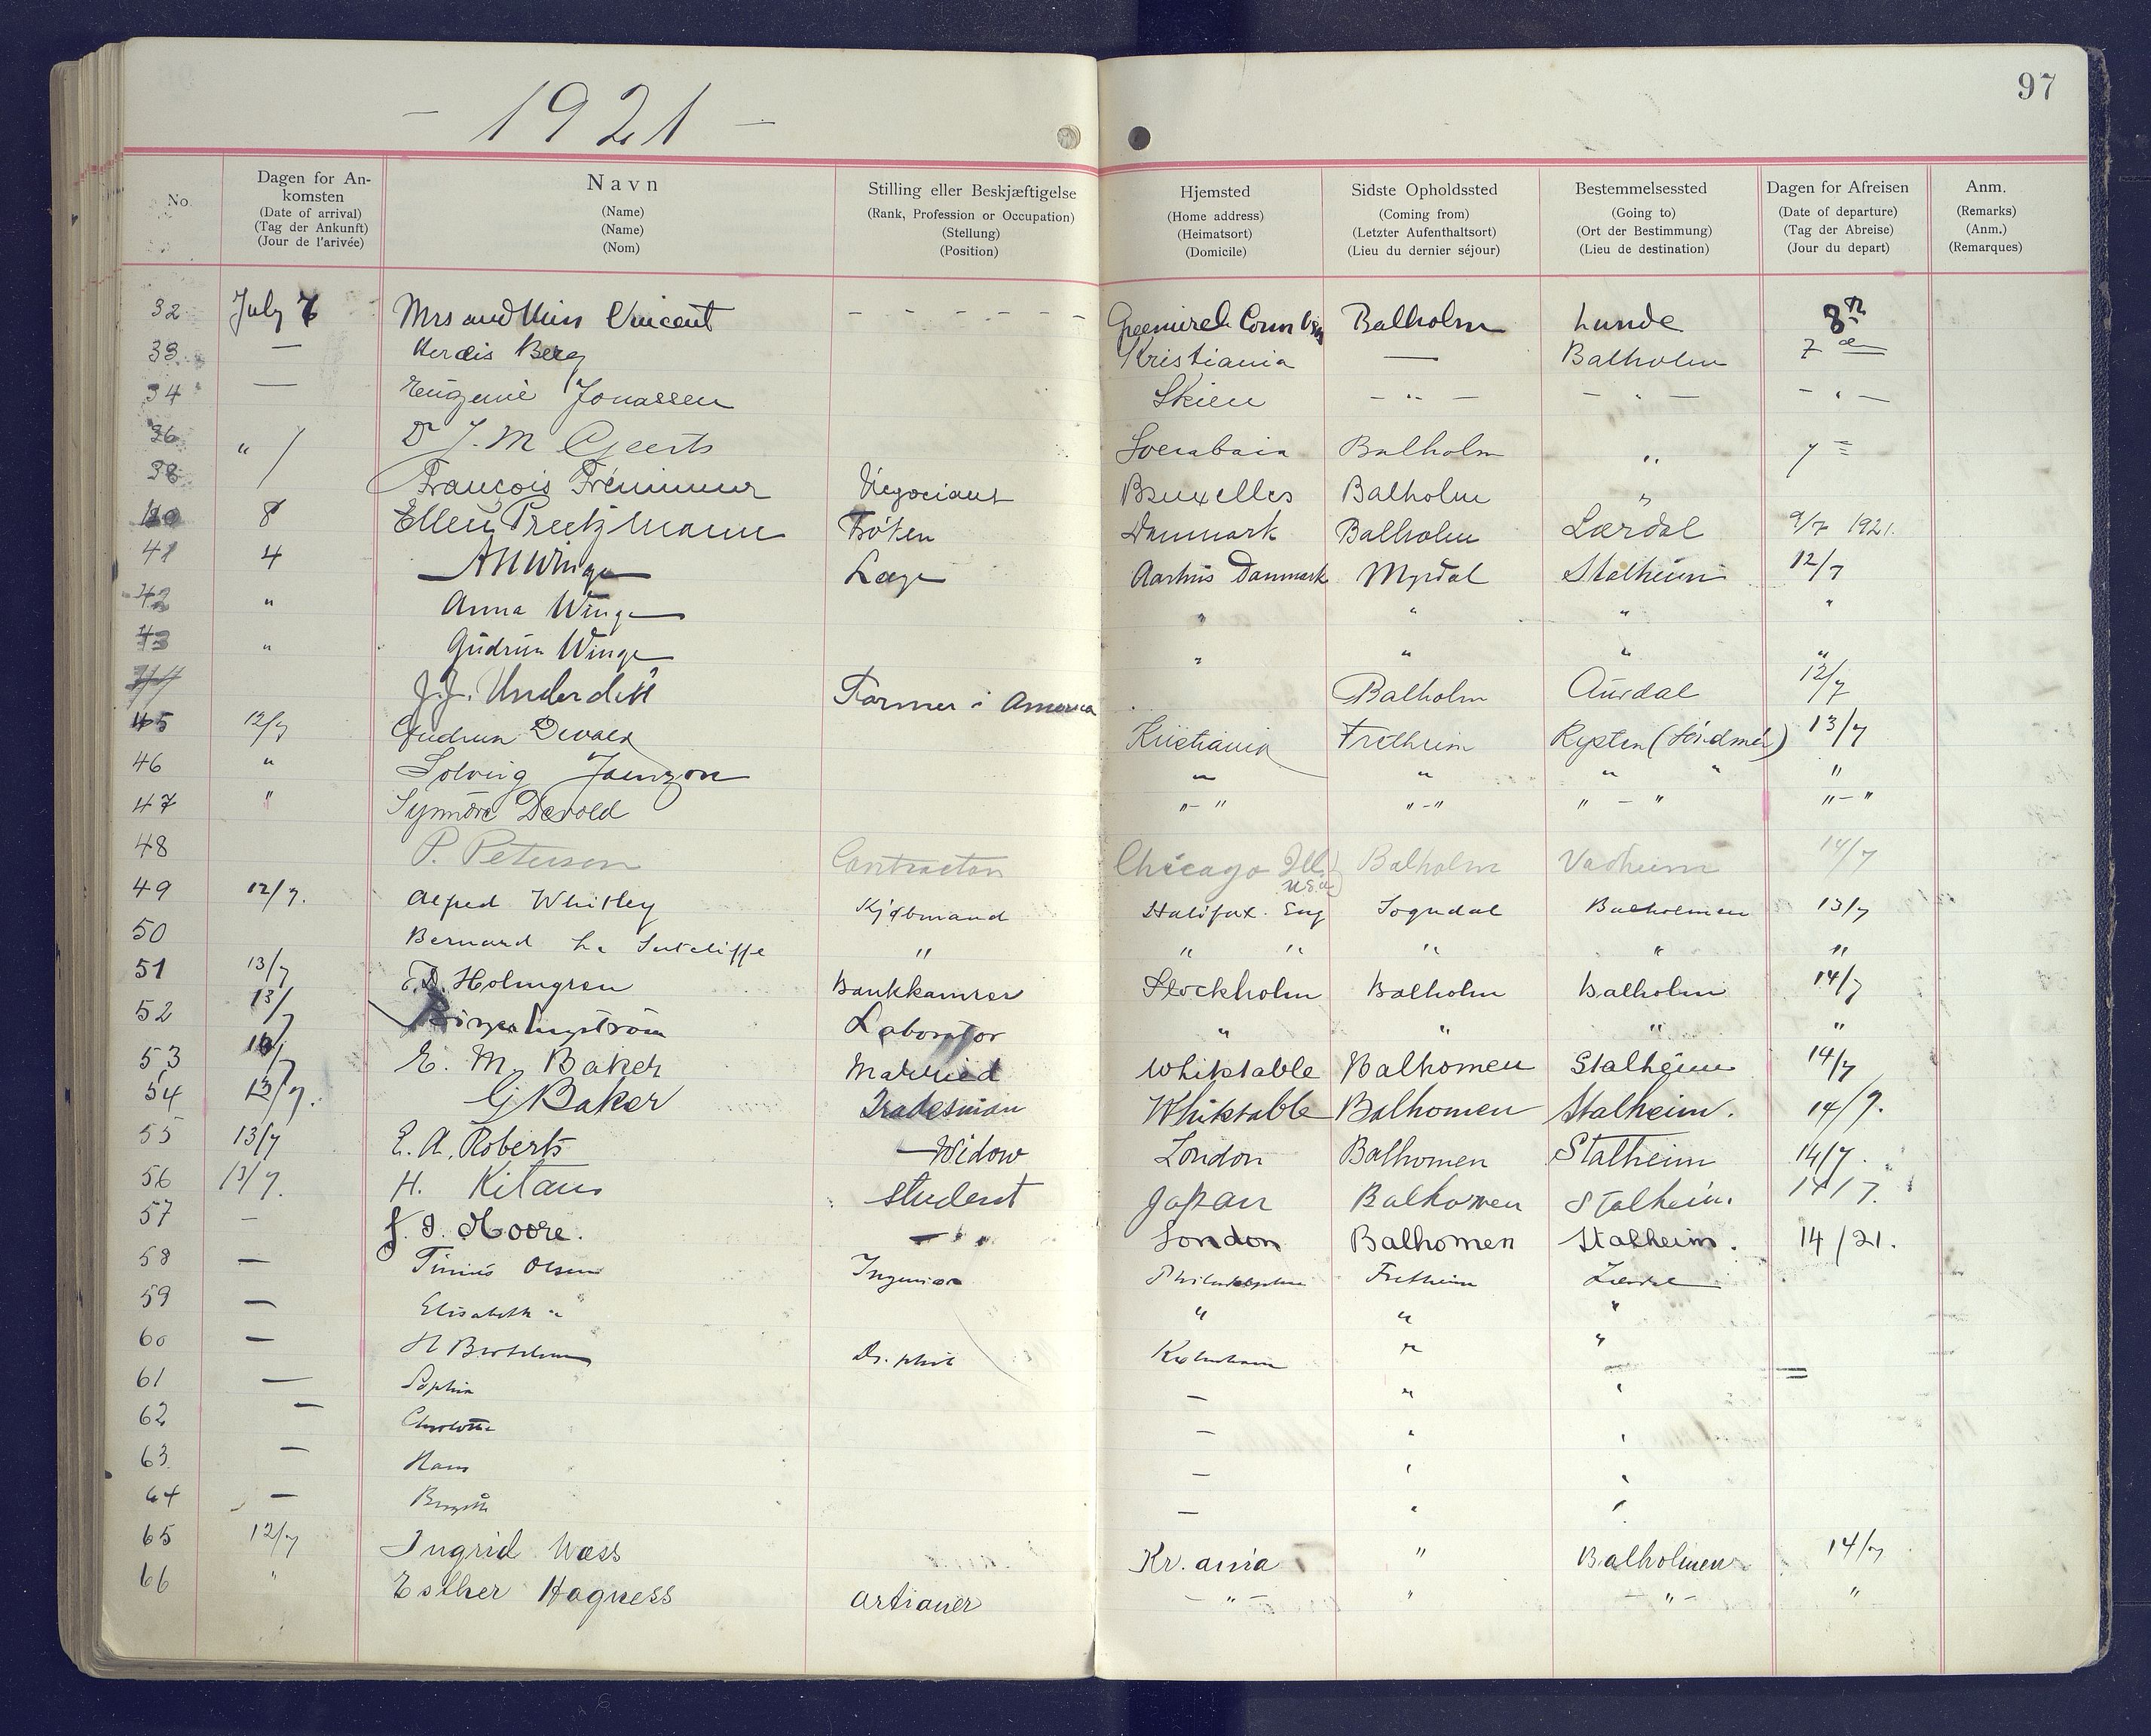 - 1921 -
97
No.
Dagen for Ankomsten
(Date of arrival)
(Tag der Ankunft)
(Jour de l'arivée)
Navn
(Name)
(Name)
(Nom)
Stilling eller Beskjæftigelse
(Rank, Profession or Occupation)
(Stellung)
(Position)
Hjemsted
(Home address)
(Heimatsort)
(Domicile)
Sidste Opholdssted
(Coming from)
(Letzter Aufenthaltsort)
(Lieu du dernier séjour)
Bestemmelsessted
(Going to)
(Ort der Bestimmung)
(Lieu de destination)
Dagen for Afreisen
(Date of departure)
(Tag der Abreise)
(Jour du depart)
Anm.
(Remarks)
(Anm.)
(Remarques)
32 July Mrs and Miss Vincent - - - - - - Balholm Lunde 8
33 — Herdis Berg Kristiania — Balholm 7
34 — Eugenie Jonassen Skien - " - - " - - " -
36 " Dr J. M. Geerts Soerabaia Balholm " 7
38 François Negociant Bruxelles Balholm "
8 Ellen Preetzmann Frøken Danmark Balholm Lærdal 9/7 1921.
41 4 Winge Læge Aarhus Danmark Myrdal Stalheim 12/7
42 " Anna Winge " " " "
43 " Gudrun Winge " " " "
J. J. Farmer i America Balholm Aurdal 12/7
45 12/7 Gudrun Devold Kristiania Fretheim 13/7
46 " Solveig " " " " "
47 " Synnöve Devold " - " " - " " - " " - "
48 P. Peterson Contractor Chicago Ill. U.S.A. Balholm Vadheim 14/7
49 12/7. Alfred Whitley Kjøbmand Halifax. Eng Sogndal Balholmen 13/7
50 Bernard Sutcliffe " " " " " "
51 13/7 Holmgren Stockholm Balholm Balholm 14/7
52 13/7 Laborator " " " "
53 E. M. Baker Married Whitstable Balhomen Stalheim 14/7
54 13/7. G Baker Tradesman Whitstable Balhomen Stalheim. 14/7.
55 13/7 E. A. Roberts Widow London Balhomen Stalheim 14/7.
56 13/7. H. student Japan Balhomen Stalheim. 14/7.
57 - Moore. — " London Balhomen Stalheim. 14/21.
58 — Tinius Olsen Ingeniør Philadelphia Fretheim Lærdal
59 — Elisabeth " " " "
60 — H Dr. phil " "
61 — Sophie - " "
62 — Charlotte - " "
63 — Hans - " "
64 — - " "
65 12/7 Ingrid Wæss Kr. ania " Balholmen 14/7
66 " Esther Hagness - " - " - " - "